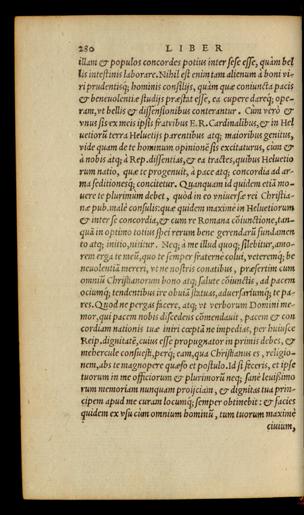 280 LIBER
illam & populos concordes potius inter sese esse, quàm bel
lis intestinis laborare. Nihil est enim tam alienum à boni vi-
ri prudentisq; hominis consilijs, quàm quæ coniuncta pacis
& beneuolentiæ studijs præstat esse, ea cupere dareq; ope-
ram, vt bellis & dissensionibus conterantur. Cùm verò &
vnus sis ex meis ipsis fratribus E.R. Cardinalibus, & in Hel
uetiorū terra Heluetijs parentibus atq; maioribus genitus,
vide quam de te hominum opinionē sis excitaturus, cùm &
à nobis atq; à Rep. dissentias, & ea tractes, quibus Heluetio
rum natio, quæ te progenuit, à pace atq; concordia ad ar-
ma seditionesq; concitetur. Quanquam id quidem etiā mo-
uere te plurimum debet, quòd in eo vniuersæ rei Christia-
næ pub. malè consulis: quæ quidem maximè in Heluetiorum
& inter se concordia, & cum re Romana cōiunctione, tan-
quā in optimo totius spei rerum bene gerendarū fundamen
to atq; initio, nititur. Neq; à me illud quoq; silebitur, amo-
rem erga te meū, quo te semper fraterne colui, veteremq; be
neuolentiā mereri, vt ne nostris conatibus, præsertim cum
omniū Christianorum bono atq; salute cōiunctis, ad pacem
ociumq; tendentibus ire obuiā sixtuas, aduersariumq; te pa-
res. Quod ne pergas facere, atq; vt verborum Domini me-
mor, qui pacem nobis discedens cōmendauit, pacem & con
cordiam nationis tuæ iniri cœptā ne impedias, per huiusce
Reip. dignitatē, cuius esse propugnator in primis debes, &
mehercule consueisti, perq; eam, qua Christianus es, religio-
nem, abs te magnopere quæso et postulo. Id si feceris, et ipse
tuorum in me officiorum & plurimorū neq; sanè leuissimo
rum memoriam nunquam proijciam, & dignitas tua prin-
cipem apud me curam locumq; semper obtinebit: & facies
quidem ex vsu cùm omnium hominū, tum tuorum maximè
ciuium,